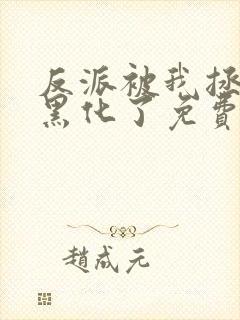 反派被我拯
黑化了免费
趙成元